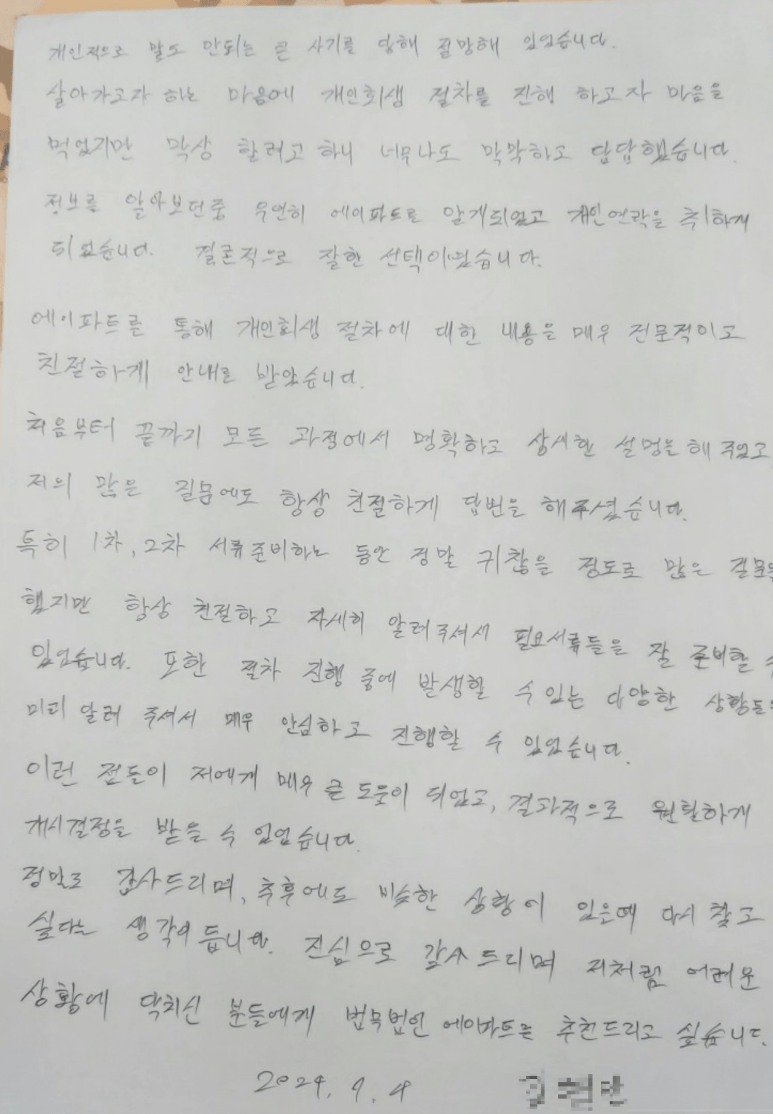 개인적으로 말도 안되는 큰 사기를 당해 절망해 있었습니다.
살아가고자 하는 마음에 개인회생 절차를 진행 하고자 마음을
먹었지만 막상 할려고 하니 너무나도 막막하고 답답했습니다.
정보를 알아보던중 우연히 에이파트를 알게되었고 개인연락을 취하게
되었습니다. 결론적으로 잘한 선택이였습니다.
에이파트를 통해 개인회생 절차에 대한 내용을 매우 전문적이고
친절하게 안내를 받았습니다.
처음부터 끝까지 모든 과정에서 명확하고 상세한 설명을 해 주었고
저의 많은 질문에도 항상 친절하게 답변을 해주셨습니다.
특히 1차, 2차 서류준비하는 동안 정말 귀찮을 정도로 많은 질문을
했지만 항상 친절하고 자세히 알려주셔서 필요서류들을 잘 준비할 수
있었습니다. 또한 절차 진행 중에 발생할 수 있는 다양한 상황들을
미리 알려 주셔서 매우 안심하고 진행할 수 있었습니다.
이런 점들이 저에게 매우 큰 도움이 되었고, 결과적으로 원활하게
개시결정을 받을 수 있었습니다.
정말로 감사드리며, 추후에도 비슷한 상황이 있은때 다시 찾고
싶다는 생각이 듭니다. 진심으로 감사드리며 저처럼 어려운
상황에 닥치신 분들에게 법무법인 에이파트를 추천드리고 싶습니다.
2024. 9. 4